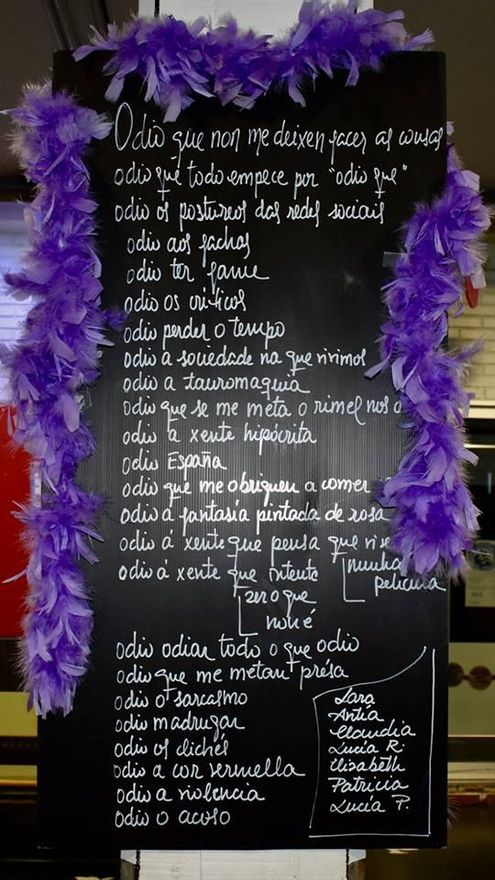 Odio que non me deixen facer as cousas
odio que todo empece por "odio que"
odio os postureos das redes sociais
odio aos fachas
odio ter fame
odio os críticos
odio perder o tempo
odio a sociedade na que vivimos
odio a tauromaquia
odio que se me meta o rimel nos o
odio a xente hipócrita
odio España
odio que me obriguen a comer
odio a fantasía pintada de rosa
odio á xente que pensa que vive
nunha
película
odio á xente que intenta
ser o que
non é
odio odiar todo o que odio
odio que me metan présa
odio o sarcasmo
odio madrugar
odio os clichés
odio a cor vermella
odio a violencia
odio o acoso
Sara
Antía
Claudia
Lucía R.
Elisabeth
Patricia
Lucía P.